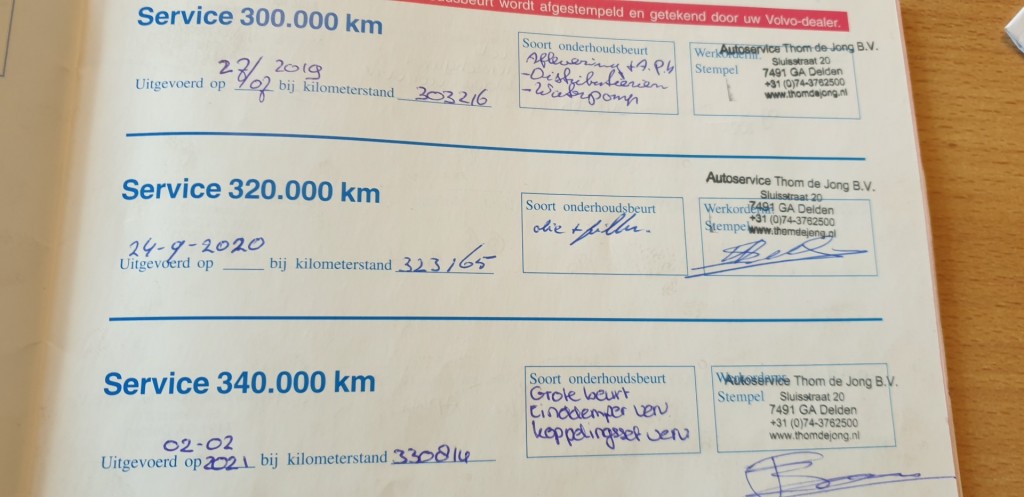 houdsbeurt wordt afgestempeld en getekend door uw Volvo-dealer.
Service 300.000 km
Uitgevoerd op 27/07 2019 bij kilometerstand 303216
Soort onderhoudsbeurt
Aflevering + A.P.k
- Distributieriem
- Waterpomp
Werkordernr.
Stempel
Autoservice Thom de Jong B.V.
Sluisstraat 20
7491 GA Delden
+31 (0)74-3762500
www.thomdejong.nl
Service 320.000 km
24-9-2020
Uitgevoerd op bij kilometerstand 323165
Soort onderhoudsbeurt
olie + filter.
Werkordernr.
Stempel
Autoservice Thom de Jong B.V.
Sluisstraat 20
7491 GA Delden
+31 (0)74-3762500
www.thomdejong.nl
Service 340.000 km
02-02
Uitgevoerd op 2021 bij kilometerstand 330814
Soort onderhoudsbeurt
Grote beurt
Einddemper verv
koppelingsset verv
Werkordernr.
Stempel
Autoservice Thom de Jong B.V.
Sluisstraat 20
7491 GA Delden
+31 (0)74-3762500
www.thomdejong.nl